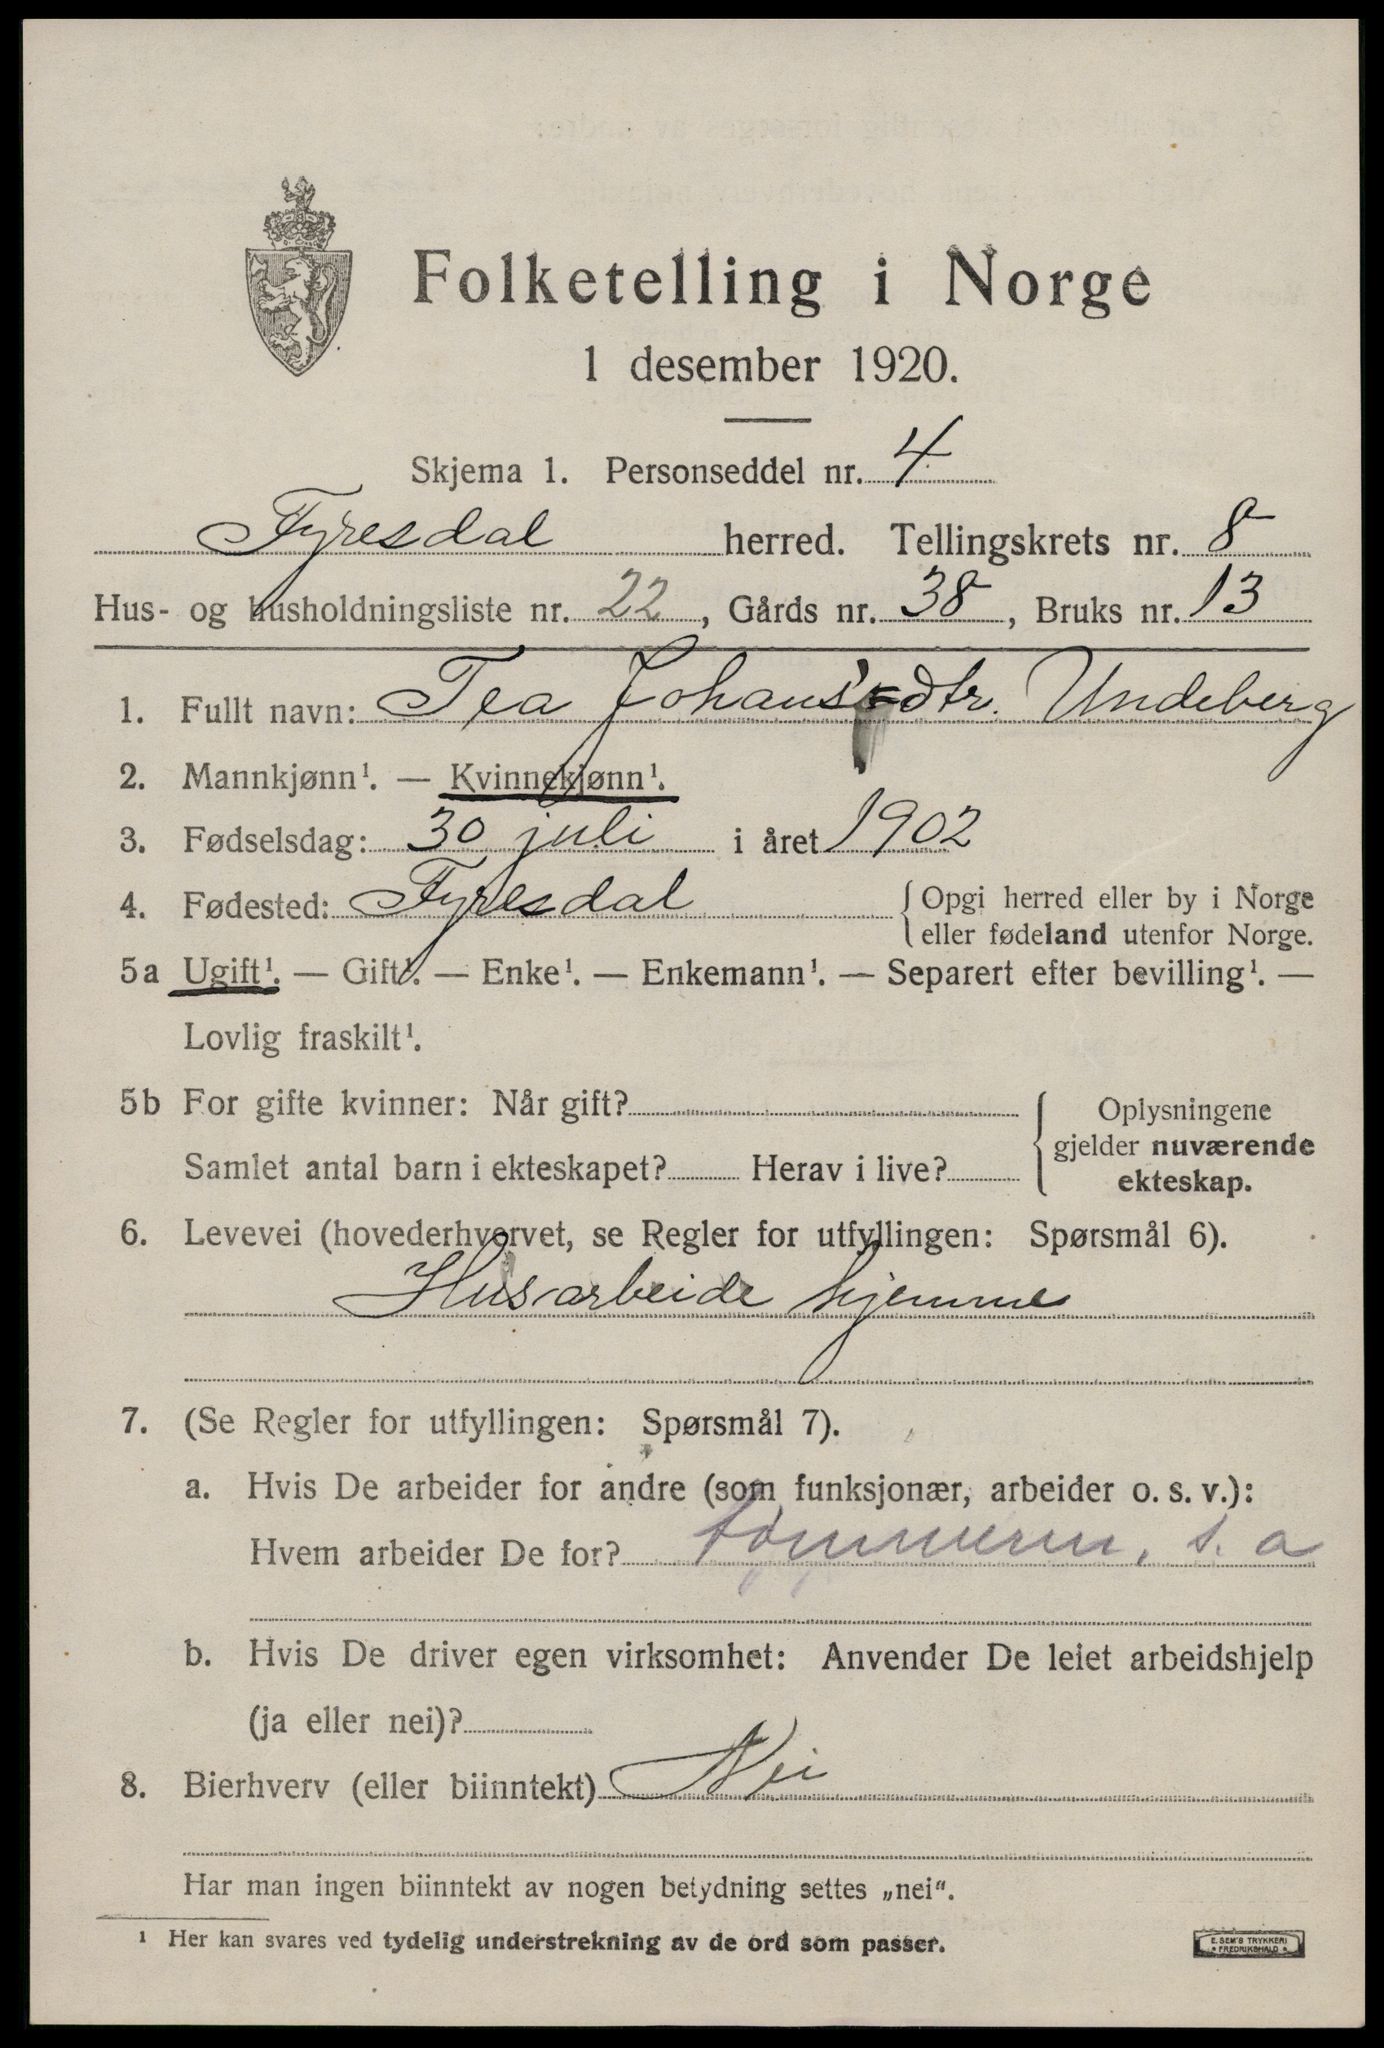 Folketelling i Norge
1 desember 1920.
Skjema 1. Personseddel nr. 4
Fyresdal herred. Tellingskrets nr. 8
Hus- og husholdningsliste nr. 22, Gårds nr. 38, Bruks nr. 13
1. Fullt navn: Tea Johansdtr. Undeberg
2. Mannkjønn¹. — Kvinnekjønn¹.
3. Fødselsdag: 30 juli i året 1902
4. Fødested: Fyresdal { Opgi herred eller by i Norge
eller fødeland utenfor Norge.
5a Ugift¹. — Gift¹. — Enke¹. — Enkemann¹. — Separert efter bevilling¹. —
Lovlig fraskilt¹.
5b For gifte kvinner: Når gift?
Samlet antal barn i ekteskapet? Herav i live?
{ Oplysningene
gjelder nuværende
ekteskap.
6. Levevei (hovederhvervet, se Regler for utfyllingen: Spørsmål 6).
Husarbeide hjemme
7. (Se Regler for utfyllingen: Spørsmål 7).
a. Hvis De arbeider for andre (som funksjonær, arbeider o. s. v.):
Hvem arbeider De for? s. a
b. Hvis De driver egen virksomhet: Anvender De leiet arbeidshjelp
(ja eller nei)?
8. Bierhverv (eller biinntekt) Nei
Har man ingen biinntekt av nogen betydning settes „nei“.
¹ Her kan svares ved tydelig understrekning av de ord som passer.
E. SEM'S TRYKKERI
FREDRIKSHALD